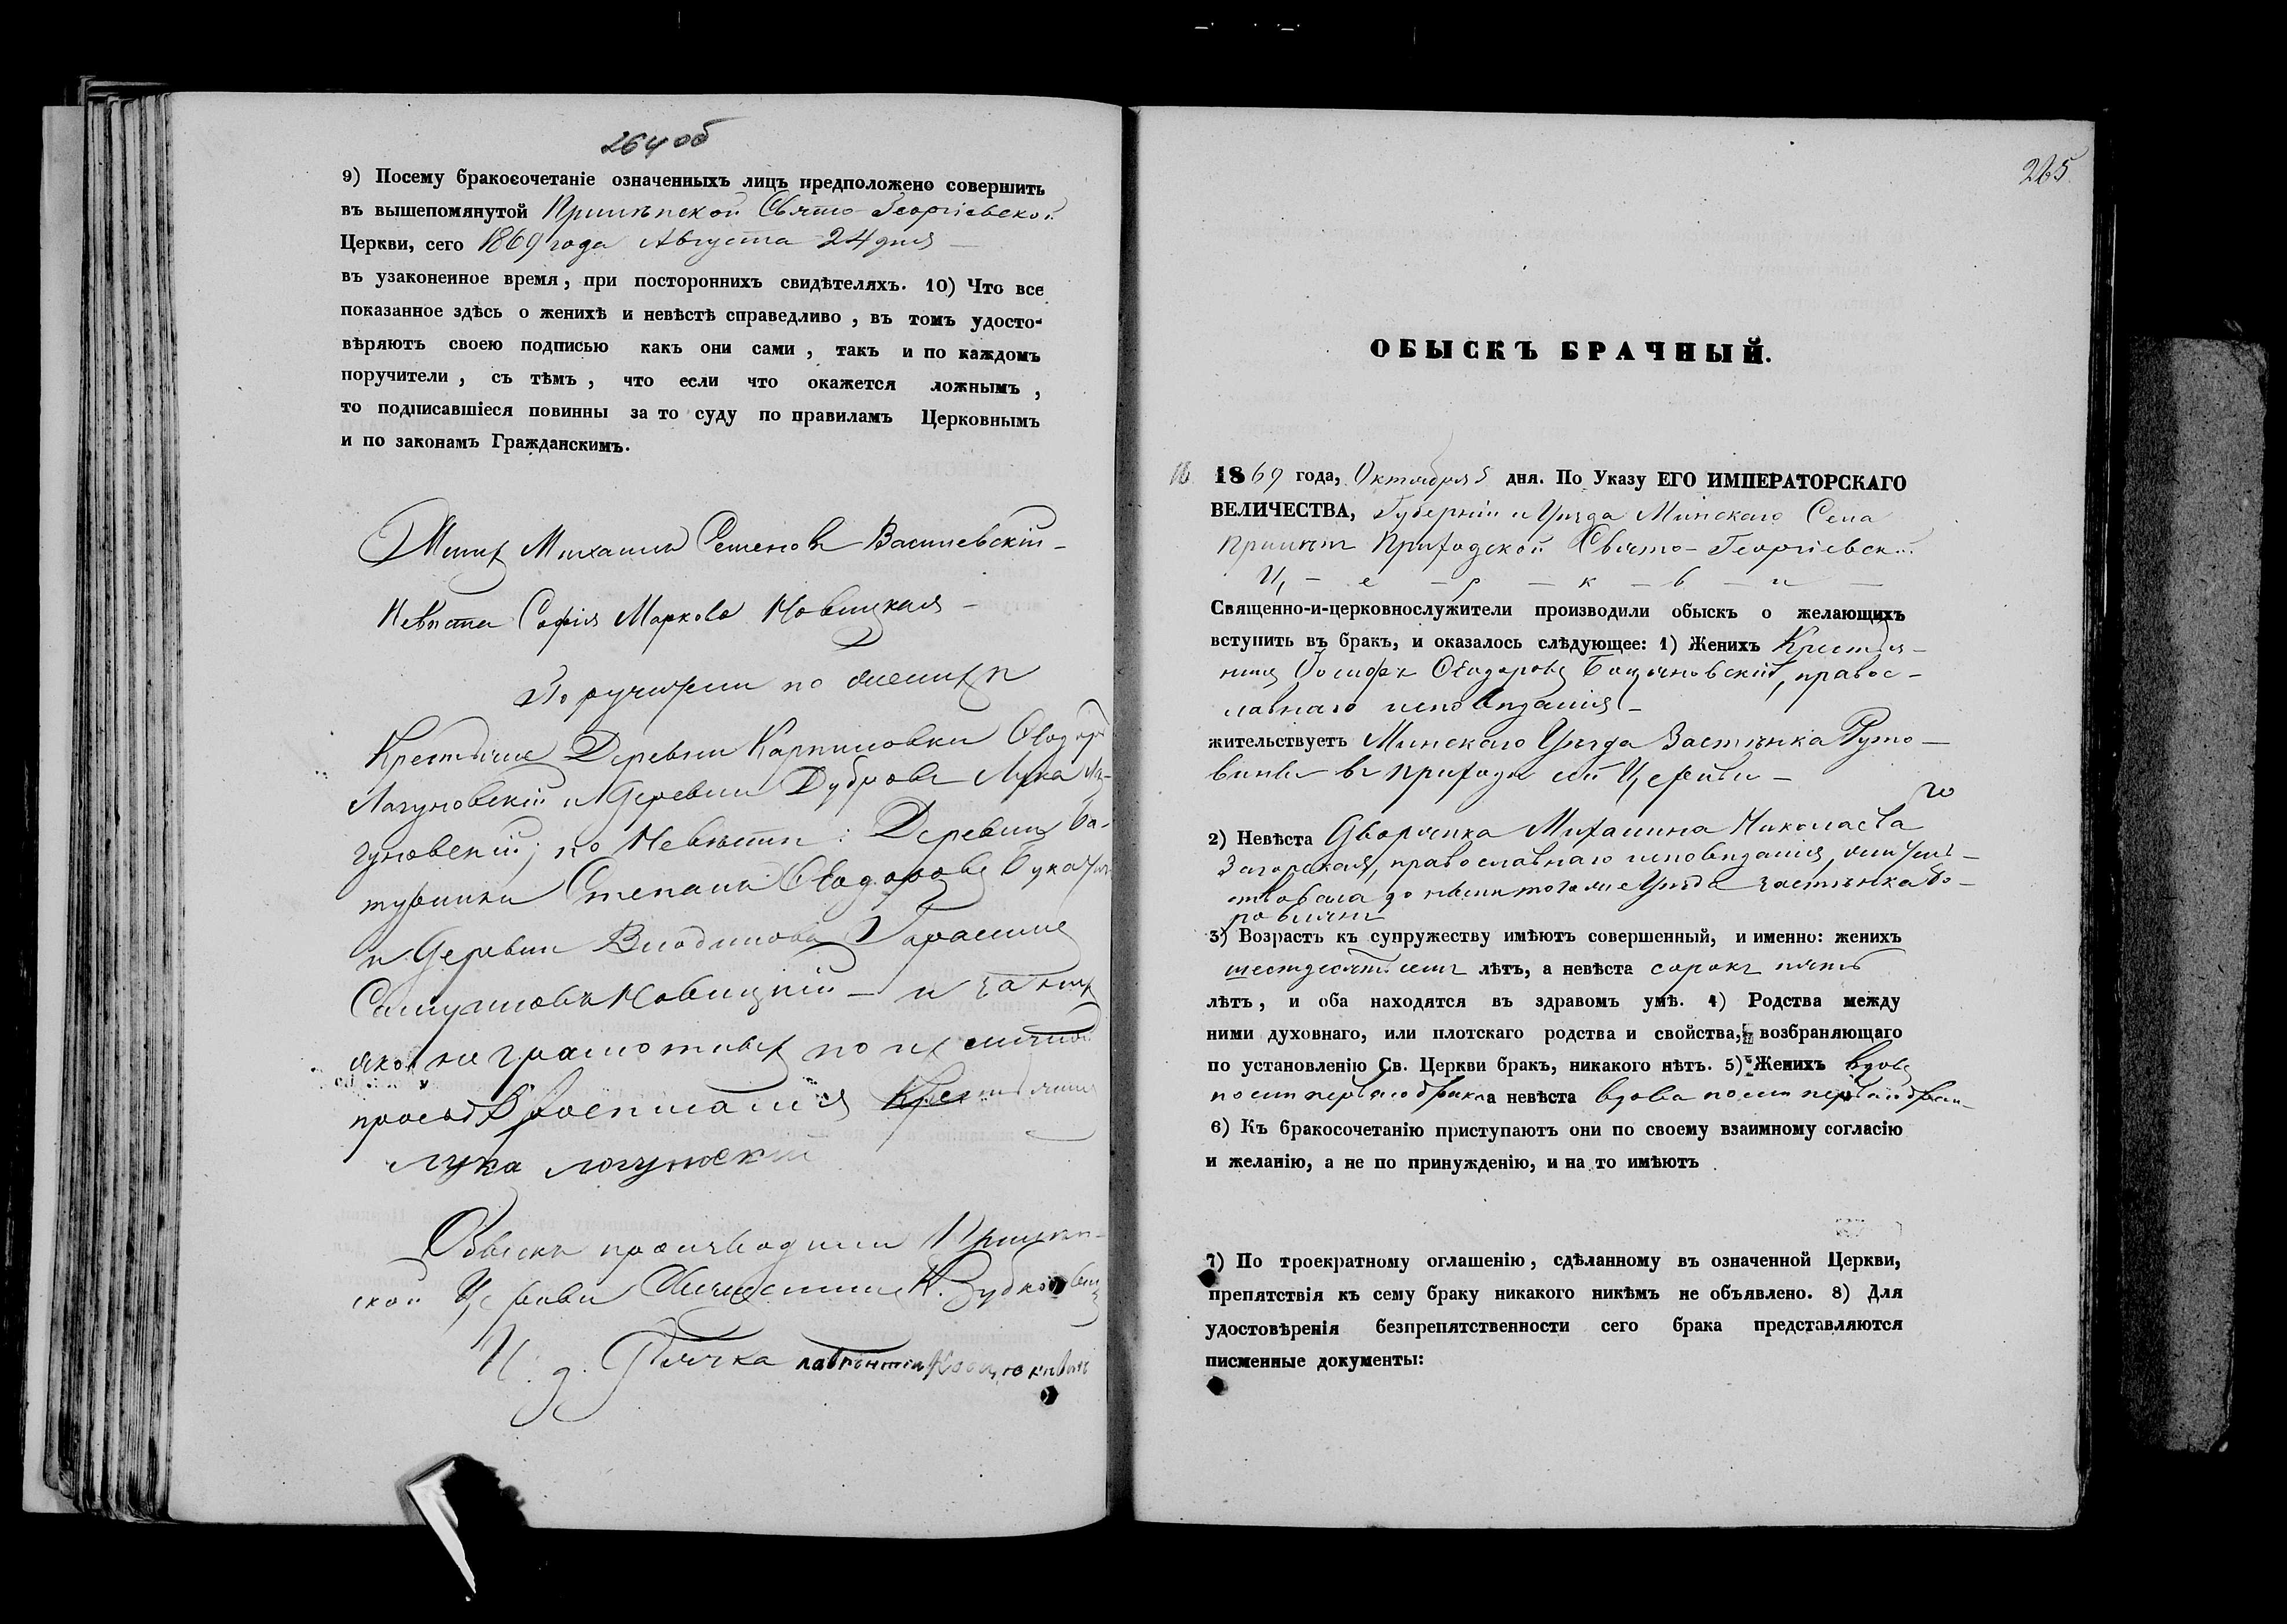 264 об
9) Посему бракосочетаніе означенныхъ лицъ предположено совершить
въ вышепомянутой Прилѣпской Свято-Георгіевской
Церкви, сего 1869 года Августа 24 дня —
въ узаконенное время, при постороннихъ свидѣтеляхъ. 10) Что все
показанное здѣсь о женихѣ и невѣстѣ справедливо, въ томъ удосто-
вѣряютъ своею подписью какъ они сами, такъ и по каждомъ
поручители, съ тѣмъ, что если что окажется ложнымъ,
то подписавшіеся повинны за то суду по правиламъ Церковнымъ
и по законамъ Гражданскимъ.
Женихъ Михаилъ Семеновъ Василевскій —
Невѣста Софія Маркова Новицкая —
Поручители по женихѣ
Крестьяне Деревни Карпиловки
Лагуновскій и Деревни Дубровы Лука Ла-
гуновскій; по Невѣстѣ: Деревни Ба-
Степанъ
и Деревни
Новицкій — и за нихъ
яко не грамотныхъ по ихъ личной
просьбѣ росписался Крестьянинъ
Лука Логуновскій
Обыскъ производили Прилѣп-
ской Церкви Священникъ Н.
И. д.
265
ОБЫСКЪ БРАЧНЫЙ.
16 1869 года, Октября 5 дня. По Указу ЕГО ИМПЕРАТОРСКАГО
ВЕЛИЧЕСТВА, Губерніи и Уѣзда Минскаго Села
Прилѣпъ Приходской Свято-Георгіевской
Ц — е — р — к — в — и —
Священно-и-церковнослужители производили обыскъ о желающихъ
вступить въ бракъ, и оказалось слѣдующее: 1) Женихъ Крестья-
нинъ Іосифъ Ѳеодоровъ правос-
лавнаго исповѣданія —
жительствуетъ Минскаго Уѣзда Застѣнка Руто-
въ приходѣ сей Церкви —
2) Невѣста Дворянка Михалина Николаева
Загорская, православнаго исповѣданія, жительс-
твовала до нынѣ того же Уѣзда застѣнка Бо-
3) Возрастъ къ супружеству имѣютъ совершенный, и именно: женихъ
шестдесятъ семь лѣтъ, а невѣста сорокъ пять
лѣтъ, и оба находятся въ здравомъ умѣ. 4) Родства между
ними духовнаго, или плотскаго родства и свойства, возбраняющаго
по установленію Св. Церкви бракъ, никакого нѣтъ. 5) Женихъ вдовъ
послѣ перваго брака а невѣста вдова послѣ перваго брака
6) Къ бракосочетанію приступаютъ они по своему взаимному согласію
и желанію, а не по принужденію, и на то имѣютъ
7) По троекратному оглашенію, сдѣланному въ означенной Церкви,
препятствія къ сему браку никакого никѣмъ не объявлено. 8) Для
удостовѣренія безпрепятственности сего брака представляются
писменные документы: